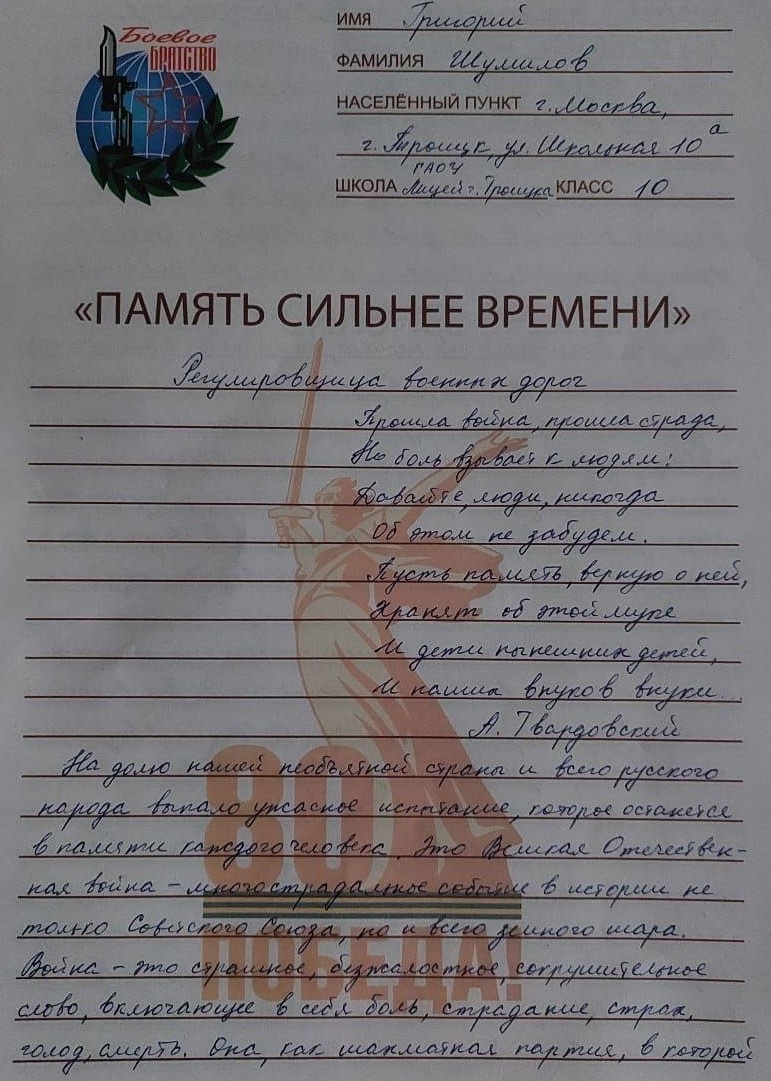 Боевое
БРАТСТВО
ИМЯ Григорий
ФАМИЛИЯ Шумилов
НАСЕЛЁННЫЙ ПУНКТ г. Москва,
г. Троицк, ул. Школьная 10а
ГАОУ
ШКОЛА Лицей г. Троицка КЛАСС 10
«ПАМЯТЬ СИЛЬНЕЕ ВРЕМЕНИ»
Регулировщица военных дорог
Прошла война, прошла страда,
Но боль взывает к людям:
Давайте, люди, никогда
Об этом не забудем.
Пусть память, верную о ней,
Хранят об этой муке
И дети нынешних детей,
И наших внуков внуки...
А. Твардовский
На долю нашей необъятной страны и всего русского
народа выпало ужасное испытание, которое останется
в памяти каждого человека. Это Великая Отечествен-
ная война – многострадальное событие в истории не
только Советского Союза, но и всего земного шара.
Война – это страшное, безжалостное, сокрушительное
слово, включающее в себя боль, страдание, страх,
голод, смерть. Она, как шахматная партия, в которой
80
ПОБЕДА!